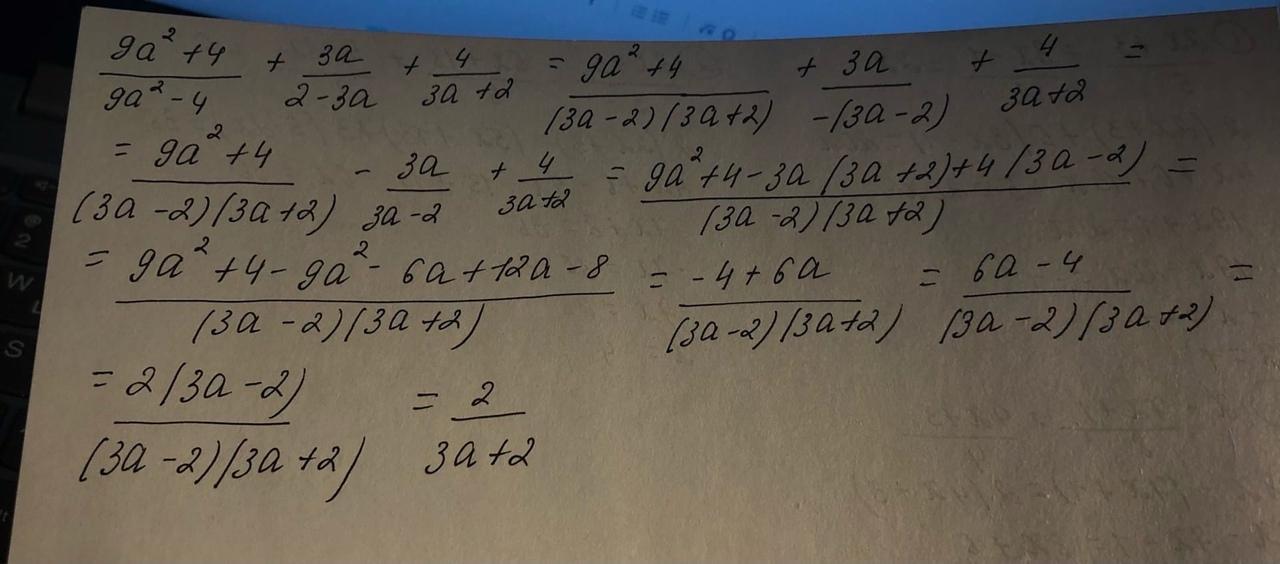 (9a² + 4)/(9a² - 4) + 3a/(2 - 3a) + 4/(3a + 2) = (9a² + 4)/((3a - 2)(3a + 2)) + 3a/(-(3a - 2)) + 4/(3a + 2) =
= (9a² + 4)/((3a - 2)(3a + 2)) - 3a/(3a - 2) + 4/(3a + 2) = (9a² + 4 - 3a(3a + 2) + 4(3a - 2))/((3a - 2)(3a + 2)) =
= (9a² + 4 - 9a² - 6a + 12a - 8)/((3a - 2)(3a + 2)) = (-4 + 6a)/((3a - 2)(3a + 2)) = (6a - 4)/((3a - 2)(3a + 2)) =
= 2(3a - 2)/((3a - 2)(3a + 2)) = 2/(3a + 2)
2
W
S